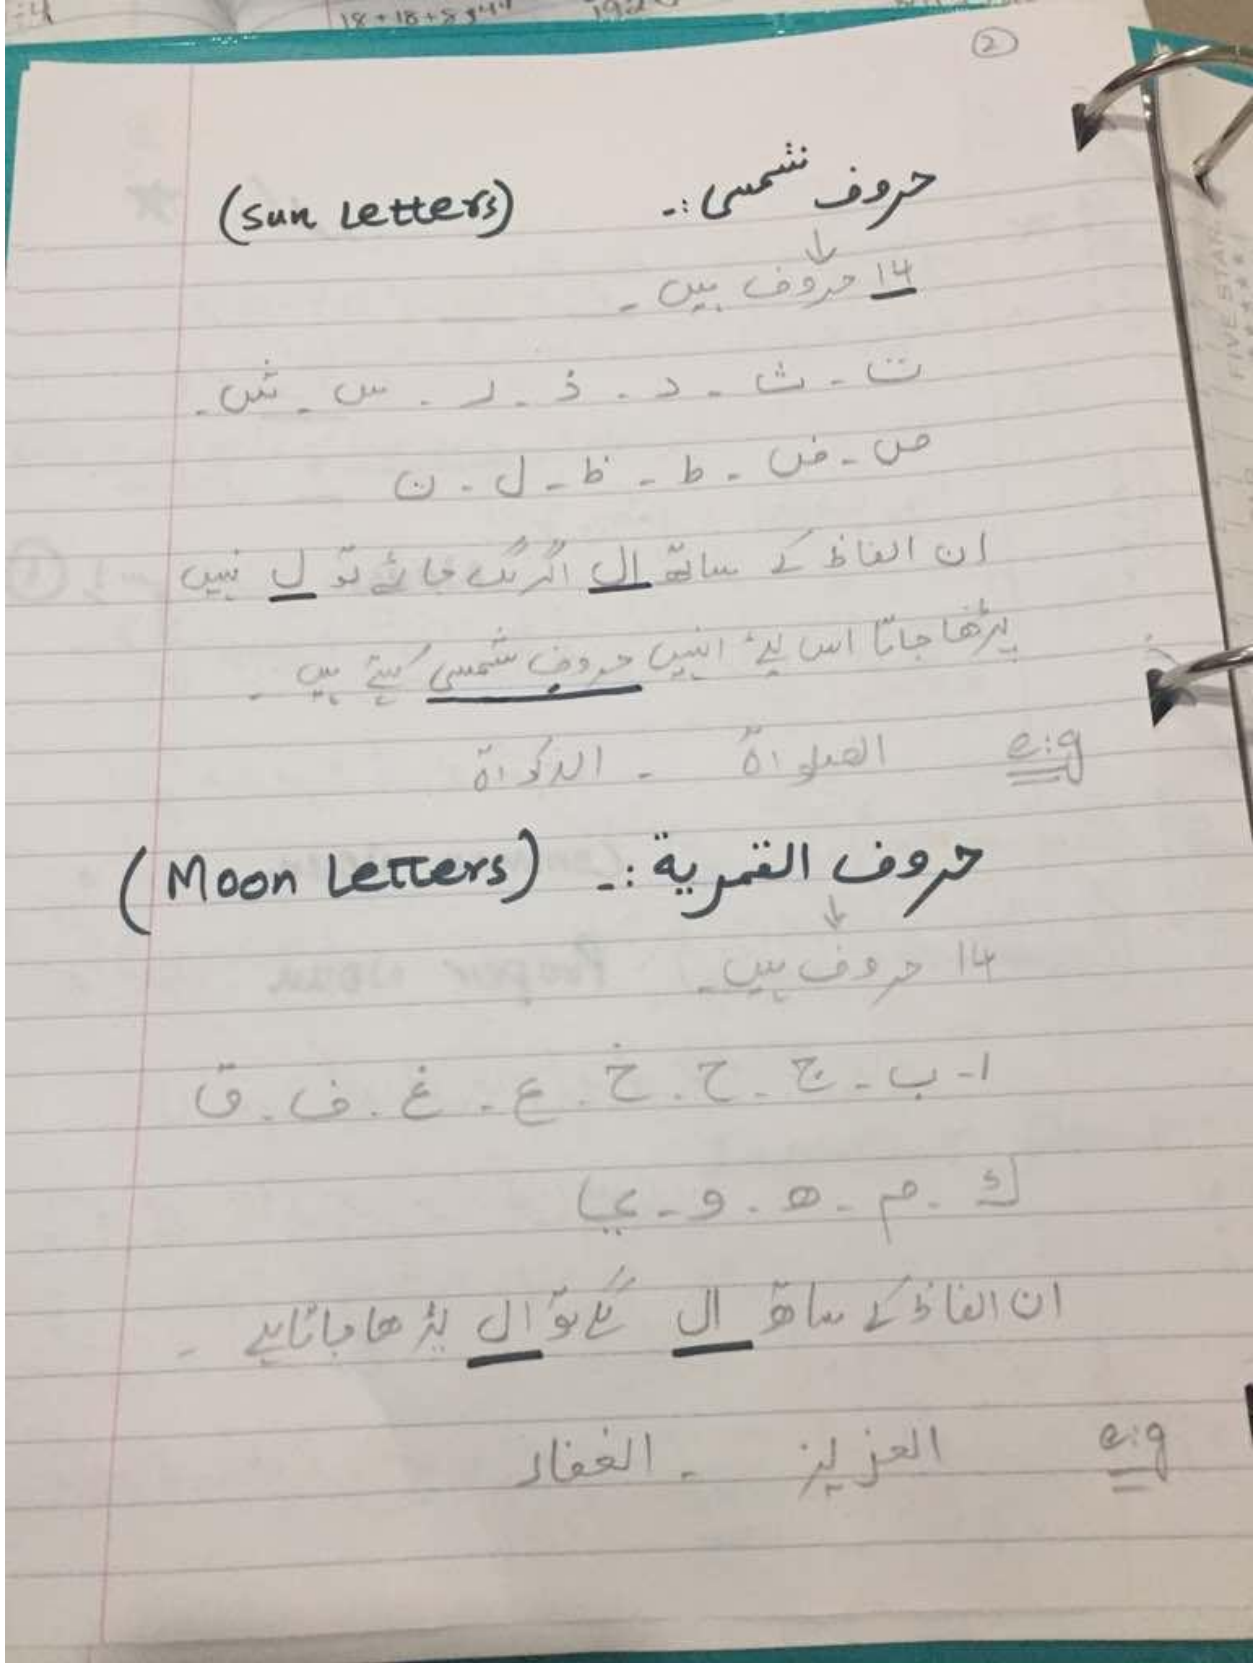 18 + 18 + 5
②
حروف شمسی :۔ (Sun Letters)
↓
۱۴ حروف ہیں ۔
ت ۔ ث ۔ د ۔ ذ ۔ ر ۔ س ۔ ش ۔
ص ۔ ض ۔ ط ۔ ظ ۔ ل ۔ ن
ان الفاظ کے ساتھ ال اگر لگ جائے تو ل نہیں
پڑھا جاتا اس لیئے انہیں حروف شمسی کہتے ہیں ۔
e.g الصلواۃ ۔ الذکواۃ
حروف القمرية :۔ (Moon Letters)
↓
۱۴ حروف ہیں ۔
ا ۔ ب ۔ ج ۔ ح ۔ خ ۔ ع ۔ غ ۔ ف ۔ ق
ك ۔ م ۔ ھ ۔ و ۔ ي
ان الفاظ کے ساتھ ال لگے تو ال پڑھا جاتا ہے ۔
e.g العزیز ۔ الغفار
FIVE STAR